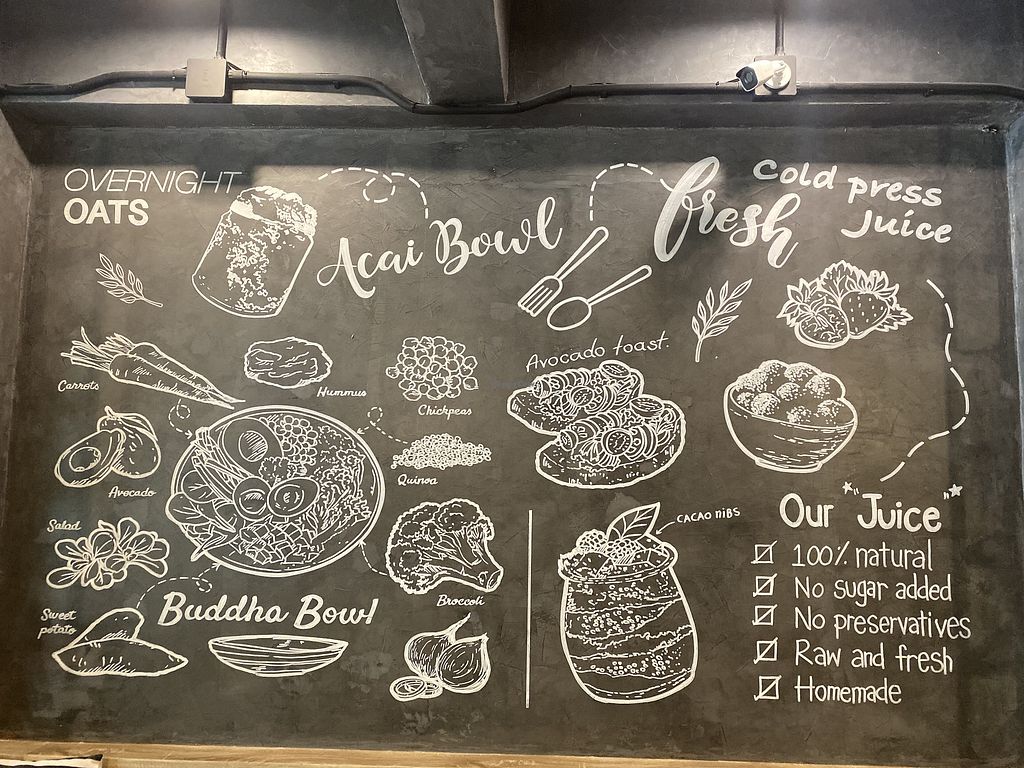 OVERNIGHT
OATS
Acai Bowl
fresh
Cold press
Juice
Carrots
Hummus
Chickpeas
Avocado toast.
Avocado
Quinoa
Salad
Broccoli
Sweet
potato
Buddha Bowl
CACAO NIBS
"Our Juice"
100% natural
No sugar added
No preservatives
Raw and fresh
Homemade